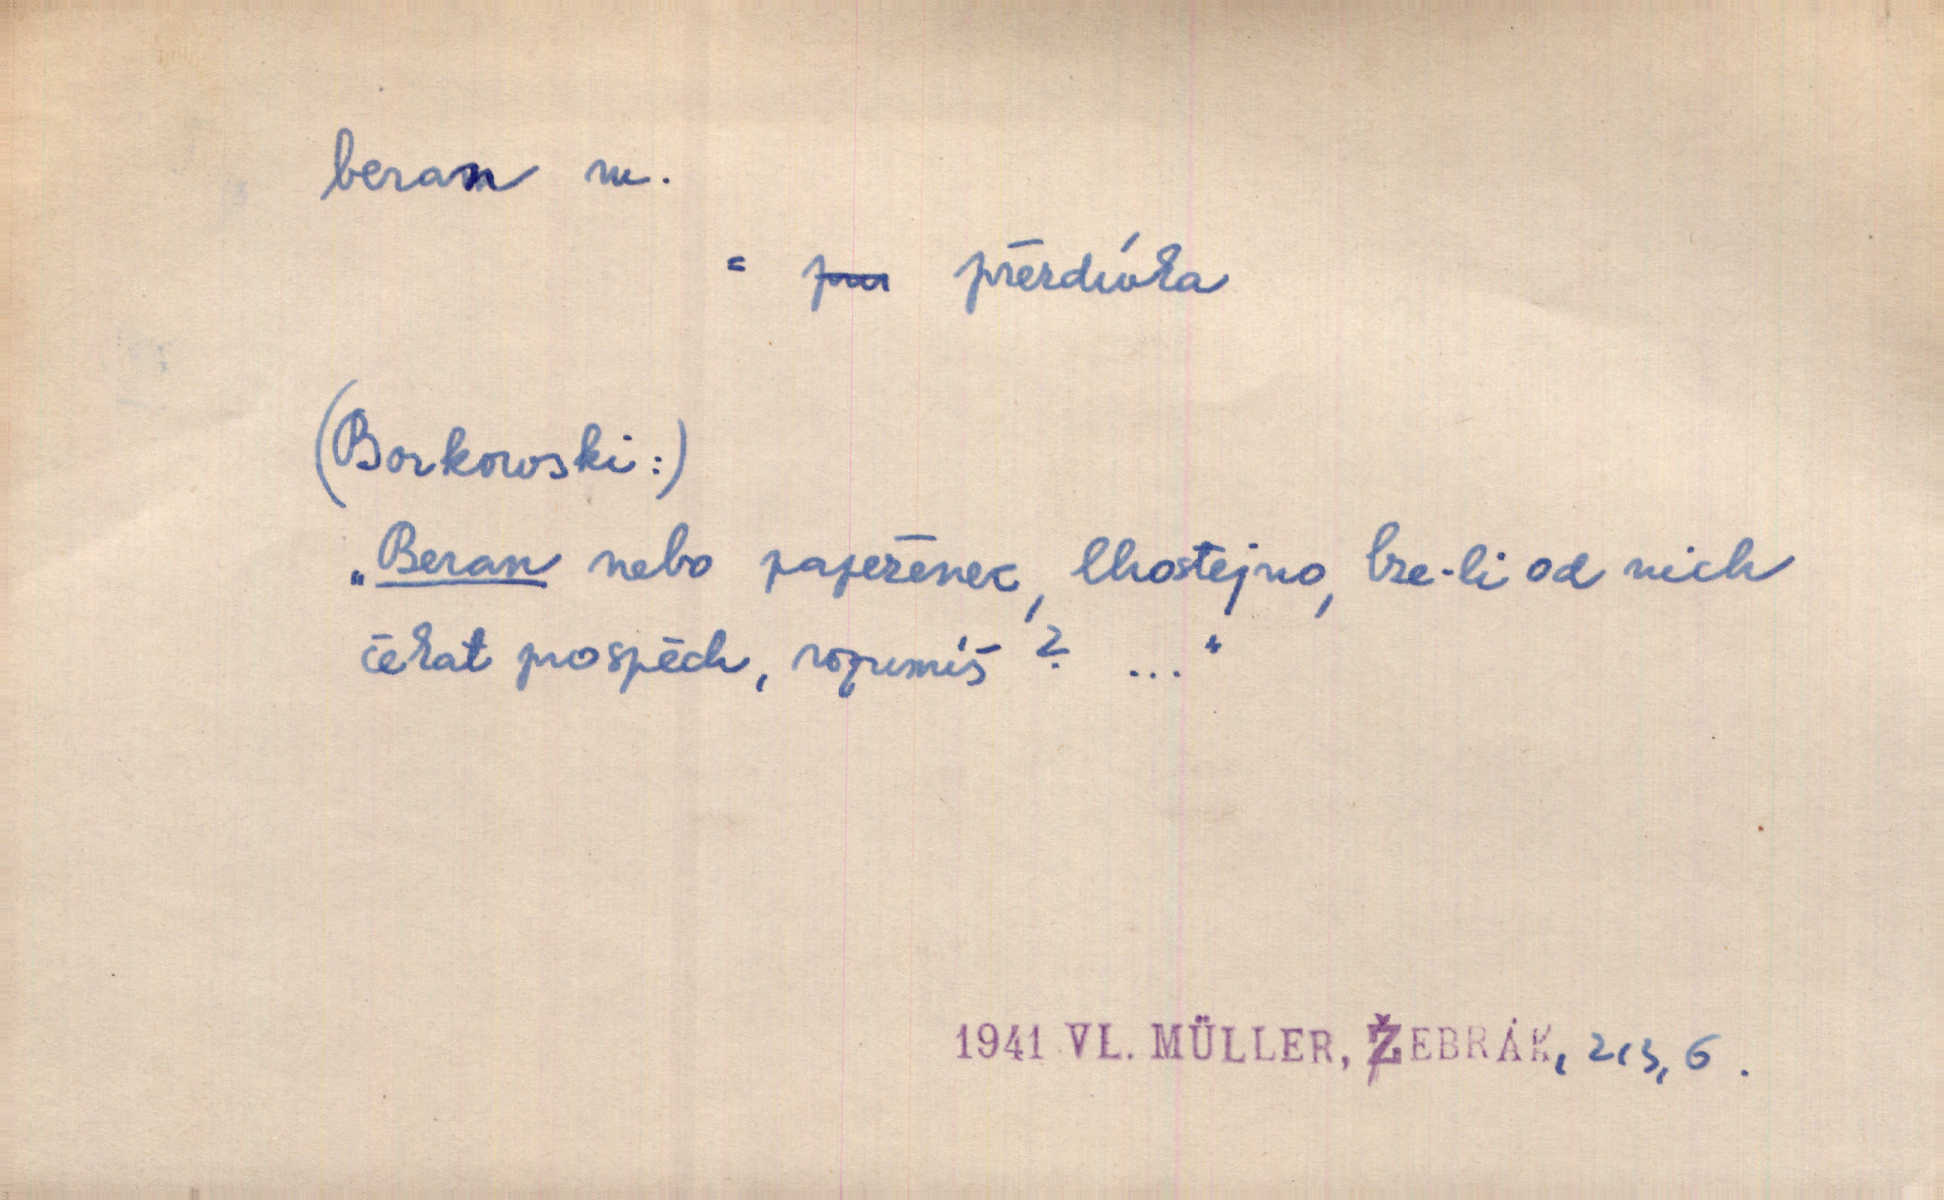 beran m.
= přezdívka
(Borkowski:)
„Beran nebo papeženec, lhostejno, lze-li od nich
čekat prospěch, rozumíš? ..."
1941 VL. MÜLLER, ŽEBRÁK,